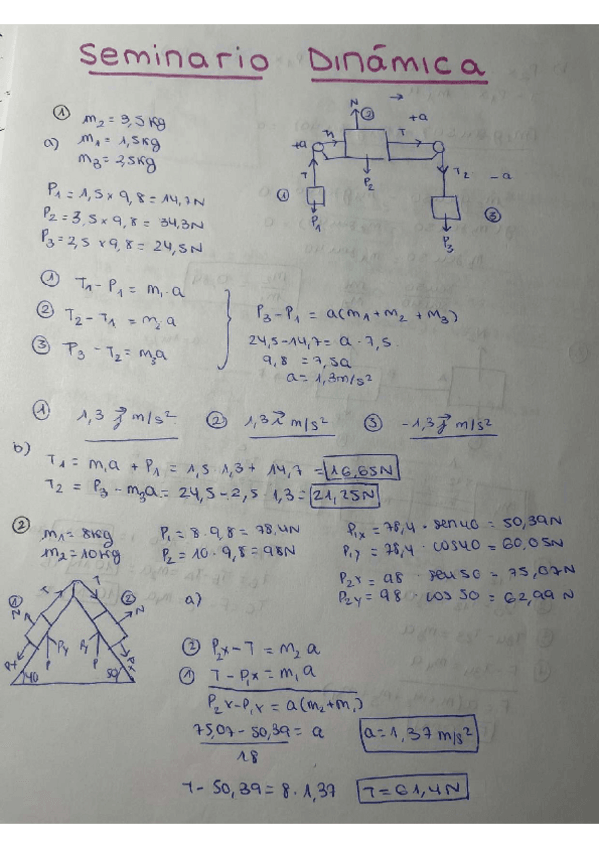 Seminario Dinámica
① m₂ = 3,5kg
a) m₁ = 1,5kg
m₃ = 2,5kg
P₁ = 1,5 × 9,8 = 14,7N
P₂ = 3,5 × 9,8 = 34,3N
P₃ = 2,5 × 9,8 = 24,5N
N ② +a
+a T₁ T
T P₂ T₂ -a
① P₁ P₃ ③
① T₁ - P₁ = m₁·a
② T₂ - T₁ = m₂a
③ P₃ - T₂ = m₃a
P₃ - P₁ = a(m₁ + m₂ + m₃)
24,5 - 14,7 = a · 7,5
9,8 = 7,5a
a = 1,3m/s²
① 1,3 j m/s² ② 1,3 i m/s² ③ -1,3 j m/s²
b)
T₁ = m₁a + P₁ = 1,5 · 1,3 + 14,7 = 16,65N
T₂ = P₃ - m₃a = 24,5 - 2,5 · 1,3 = 21,25N
② m₁ = 8kg P₁ = 8 · 9,8 = 78,4N P₁x = 78,4 · sen40 = 50,39N
m₂ = 10kg P₂ = 10 · 9,8 = 98N P₁y = 78,4 · cos40 = 60,05N
P₂x = 98 · sen50 = 75,07N
P₂y = 98 cos50 = 62,99N
T T
① N ② N
Py Py
Px P P Px
40 50
a)
② P₂x - T = m₂a
① T - P₁x = m₁a
P₂x - P₁x = a(m₂ + m₁)
75,07 - 50,39 = a a = 1,37 m/s²
18
T - 50,39 = 8 · 1,37 T = 61,4N